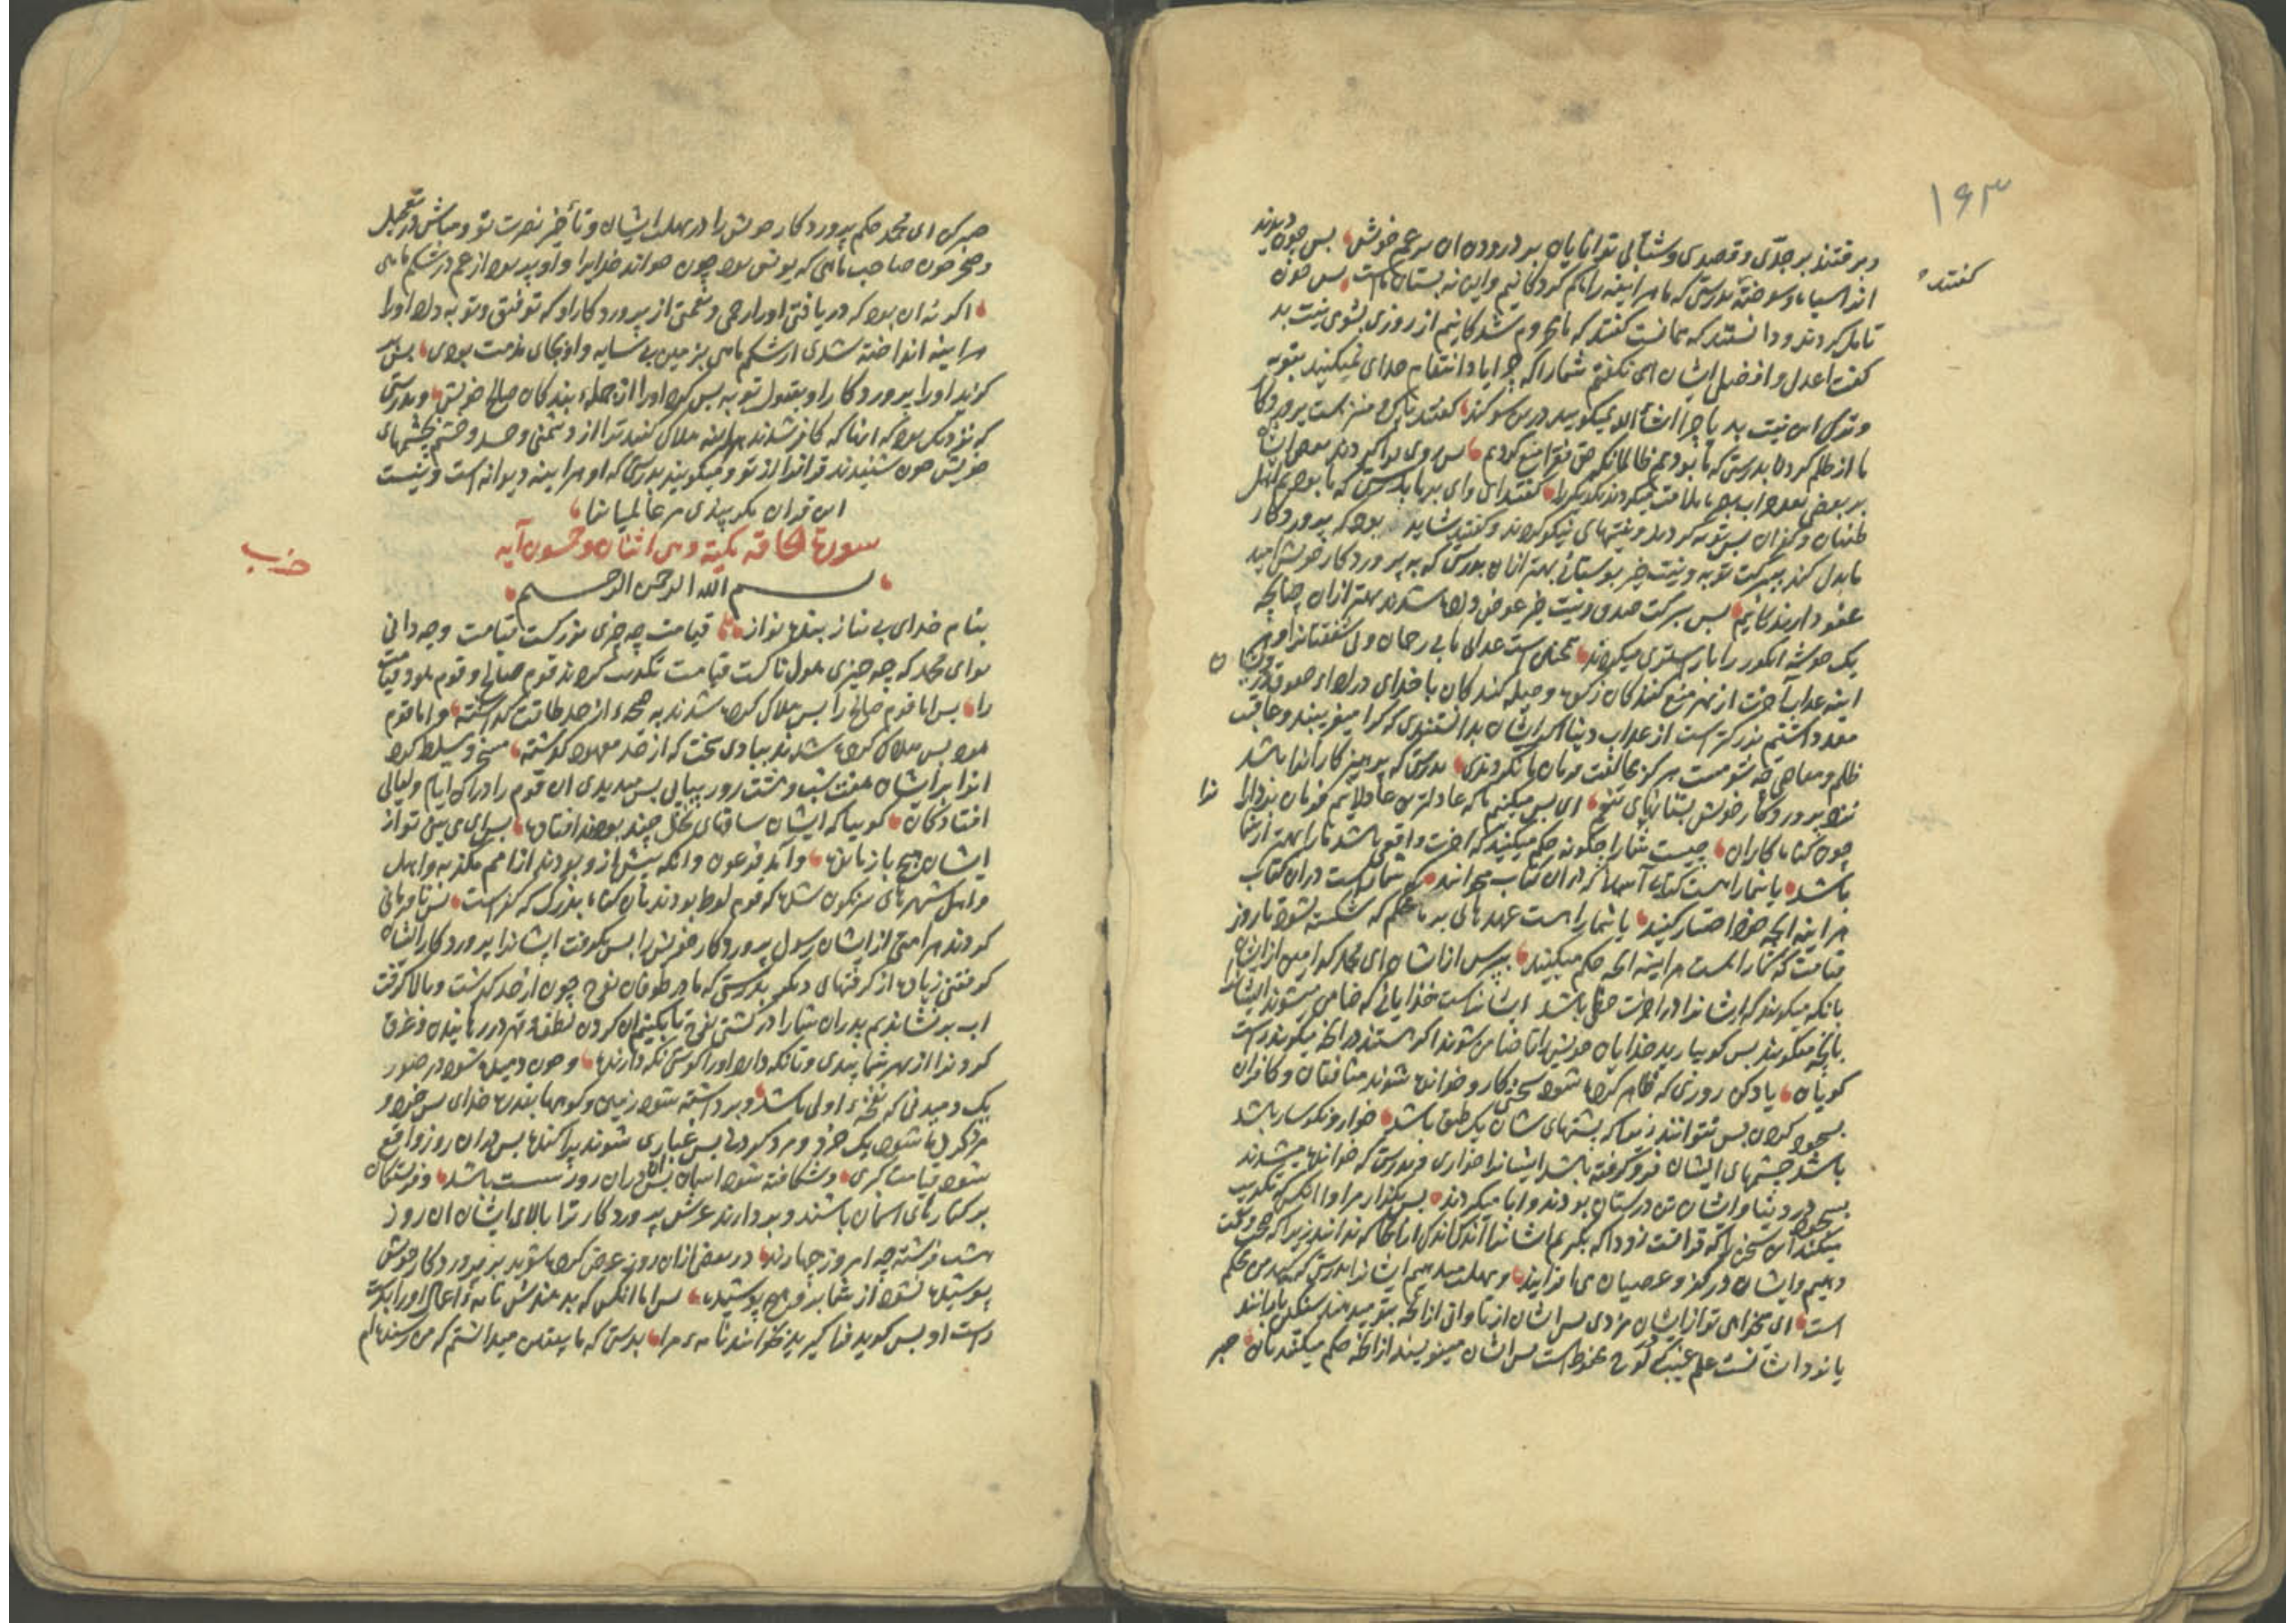 ۱۶۳
و برفتند بر جدّی و قصدی و شتابی توانایان بر درودن ان بزعم خویش بس چون دیدند
گفتند
انرا سیاه و سوخته بدرستی که ما هراینه راه کم کردکانیم و این نه بستان ماست بس چون
تامل کردند و دانستند که همانست گفتند که ما محروم شدکانیم از روزی بشومی نیت بد
گفت اعدل و افضل ایشان ای نگفتم شمارا که چرا یاد انتقام خدای نمیکنید بتوبه
و ترک این نیت بد یا چرا انشأ الله نمیگویید درین سوکند گفتند پاک و منزه است پروردکار
ما از ظلم کردن بدرستی که ما بودیم ظالمان که حق فقرا منع کردیم بس روی بوا کردند بعضی ایشان
بر بعضی ملامت میکردند یکدیکررا گفتند ای وای بر ما بدرستی که ما بودیم اهل
طغیان و کفران بس توبه کردند و نیتهای نیکو کردند و گفتند شاید بود که پروردکار
ما بدل کند ببرکت توبه و نیت خیر بوستانی بهتر ازان بدرستی که به پروردکار خویش امید
عفو دارندکانیم بس ببرکت صدق و نیت خیر عوض داده شدند بهتر ازان چنانچه
یک خوشه انکور را بار استری میکردند همچنین است عذاب ما بی رحمان و بی شفقتانرا و هر
اینه عذاب آخرت از بهر منع کنندکان زکوة و حیله کنندکان با خدای در اداء صدقه
معد داشتیم بزرکتر است از عذاب دنیا اکر ایشان بدانستندی که کرا میفریبند و عاقبت
ظلم و معاصی چه شومست هرکز مخالفت فرمان ما نکردندی بدرستی که پرهیزکارانرا باشد
نزد پروردکار خویش بستانهای تنعم ای بس میکنیم ما که عادلترین عادلانیم فرمان بردارانرا
چون کناه کاران چیست شمارا چکونه حکم میکنید که اخرت واقعی باشد مارا بهتر از شما
باشد یا شمارا هست کتاب آسمانی که دران کتاب میخوانید که شماراست دران کتاب
هراینه انچه خود اختیار کنید یا شمارا هست عهدهائی بر ما محکم که شکسته نشود تا روز
قیامت که شمارا هست هراینه انچه حکم میکنید بپرس ازیشان ای محمد کدامین از ایشان
بانکه میکویند که ایشانرا در اخرت حظی باشد ایشانراست خدایانی که ضامن میشوند ایشانرا
بانچه میکویند بس کو بیارید خدایان خویش را تا ضامن شوند اکر هستند در انچه میکویند راست
کویان یاد کن روزی که ظاهر کرده شود سختی کار و خوانده شوند منافقان و کافران
بسجود کردن بس نتوانند زیراکه پشتهای شان یک طبق باشد خوار و نکوسار باشد
باشد چشمهای ایشان فرو کرفته باشد ایشانرا خواری و بدرستی که خوانده میشدند
بسجود در دنیا و ایشان تن درستان بودند و ابا میکردند بس بکذار مرا و انکس که تکذیب
میکند این سخن را که قرانست زود که بکیریم ایشانرا اندک اندک از انجا که ندانند زیراکه صحت
دهیم و ایشان در کفر و عصیان می افزایند و مهلت میدهیم ایشانرا بدرستی که کید من محکم
است ای میخواهی تو از ایشان مزدی بس ایشان از تاوانی از انچه بتو میدهند سنکین بارانند
یا نزد ایشانست علم غیب که لوح محفوظ است بس ایشان مینویسند از انچه حکم میکنند بان صبر
صبر کن ای محمد حکم پروردکار خویش را در مهلت ایشان و تأخیر نصرت تو و مباش در تعجیل
و ضجر چون صاحب ماهی که یونس بود چون خواند خدایرا و او پر بود از غم در شکم ماهی
اکر نه ان بود که دریافتی اورا رحمی و نعمتی از پروردکار او که توفیق و توبه داد اورا
هراینه انداخته شدی از شکم ماهی بزمین بی سایه و او بجای مذمت بودی بس بر
کزید اورا پروردکار او بقبول توبه بس کرد اورا از جملهء بندکان صالح خویش و بدرستی
که نزدیک بود که انانکه کافر شدند هراینه هلاک کنند ترا از دشمنی و حسد و خشم بچشمهای
خویش چون شنیدند قرانرا از تو و میکویند بدرستی که او هراینه دیوانه است و نیست
این قران مکر پندی مر عالمیانرا
سورة الحاقه مکیة و هی اثنان و خمسون آیه
حزب
بسم الله الرحمن الرحیم
بنام خدای بی نیاز بنده نواز قیامت چه چیزی بزرکست قیامت و چه دانی
تو ای محمد که چه چیزی هولناکست قیامت تکذیب کردند قوم صالح و قوم هود قیامت
را بس اما قوم صالح را بس هلاک کرده شدند به صیحهء از حد طاقت کذشته و اما قوم
هود بس هلاک کرده شدند ببادی سخت که از حد معهود کذشته مسخر و مسلط کرد
انرا بر ایشان هفت شب و هشت روز پیاپی بس میدیدی ان قوم را در ان ایام و لیالی
افتادکان کوییا که ایشان ساقهای نخل چند بودند افتاده بس ای می بینی تو از
ایشان هیچ باز مانده و آمد فرعون و انکه پیش از و بودند از امم مکذبه و اهل
و اهل شهرهای سرنکون شده که قوم لوط بودند بان کناه بزرک که کفر است بس نافرمانی
کردند هر امتی از ایشان رسول پروردکار خویش را بس بکرفت ایشانرا پروردکار ایشان
کرفتنی زیاده از کرفتهای دیکر بدرستی که ما در طوفان نوح چون از حد کذشت و بالا کرفت
اب بر نشاندیم پدران شمارا در کشتی نوح تا بکنیم ان کردن لطف و قهر در رهانیدن و غرق
کردن را از بهر شما پندی و تا نکه دارد اورا کوشی نکه دارنده و چون دمیده شود در صور
یک دمیدنی که نفخهء اولی باشد و برداشته شود زمین و کوهها بقدرت خدای بس خرد و
مرد کرده شود یک خرد و مرد کردنی بس غباری شوند پراکنده بس دران روز واقع
شود قیامت کبری و شکافته شود اسمان بس ان دران روز سست باشد و فرشتکان
بر کنارهای اسمان باشند و بردارند عرش پروردکار ترا بالای ایشان ان روز
هشت فرشته چه امروز چهارند در بعض ازان روز عرض کرده شوید بر پروردکار خویش
پوشیده نشود از شما بر و هیچ پوشیده بس اما انکس که بدهندش نامهء اعمال اورا بدست
راست او بس کوید فرا کیرید بخوانید نامهء مرا بدرستی که ما بیقین میدانستم که من رسنده ام